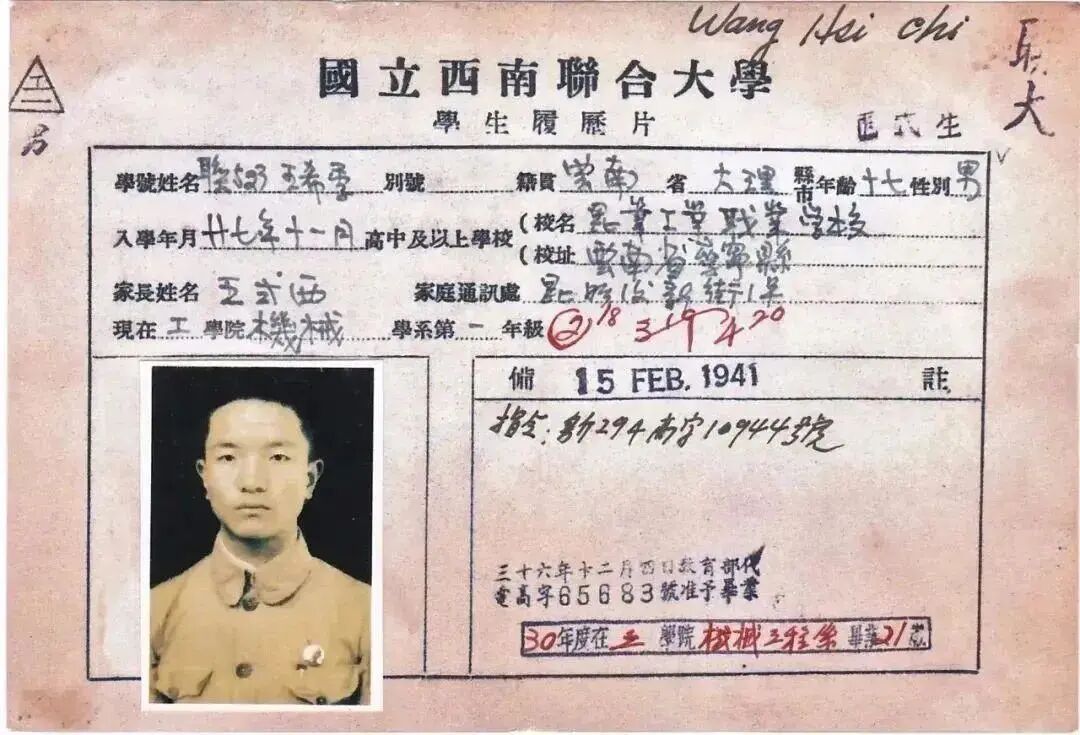 Wang Hsi Chi
國立西南聯合大學
工
學生履歷片
正式生
學號姓名 聯523 王希季 別號 籍貫 雲南 省 大理 縣市 年齡 十七 性別 男
入學年月 廿七年十一月 高中及以上學校 (校名 昆華工業職業学校
(校址 雲南省 縣
家長姓名 王式西 家庭通訊處 昆明 新街
現在 工 學院 機械 學系第 一 年級 ② 18 3 19 4 20
備 15 FEB. 1941 註
指令: 294 高字10944號
三十六年十二月四日教育部代
電高字65683號准予畢業
30年度在 工 學院 機械工程系 畢業 21